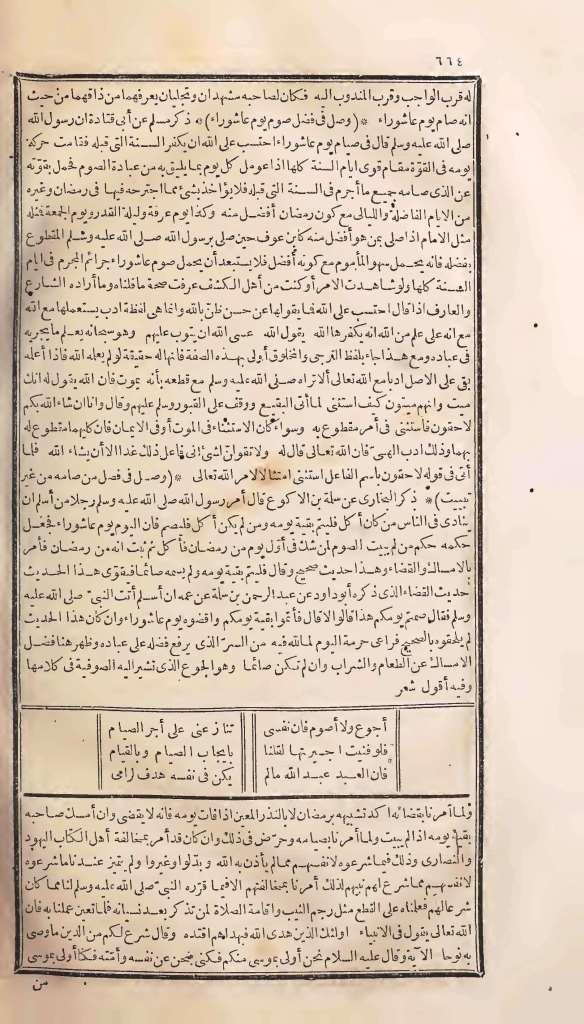 ٦٦٤
له قرب الواجب وقرب المندوب اليه فكان لصاحبه مشهدان وتجليان يعرفهما من ذاقهما من حيث
انه صام يوم عاشوراء *(وصل فى فضل صوم يوم عاشوراء)* ذكر مسلم عن أبى قتادة ان رسول الله
صلى الله عليه وسلم قال فى صيام يوم عاشوراء احتسب على الله ان يكفر السنة التى قبله فقامت حركة
يومه فى القوة مقام قوى ايام السنة كلها اذا عومل كل يوم بما يليق به من عبادة الصوم فحمل بقوته
عن الذى صامه جميع ما أجرم فى السنة التى قبله فلا يؤاخذ بشئ مما اجترحه فيها فى رمضان وغيره
من الايام الفاضلة والليالى مع كون رمضان أفضل منه وكذا يوم عرفة وليلة القدر ويوم الجمعة فمثله
مثل الامام اذا صلى بمن هو أفضل منه كابن عوف حين صلى برسول الله صلى الله عليه وسلم المقطوع
بفضله فانه يحمل سهو المأموم مع كونه أفضل فلا يستبعد أن يحمل صوم عاشوراء جرائم المجرم فى ايام
السنة كلها ولو شاهدت الامر أو كنت من أهل الكشف عرفت صحة ما قلناه وما أراده الشارع
والعارف اذا قال احتسب على الله فما يقولها عن حسن ظن بالله وانما هى لفظة ادب يستعملها مع الله
مع انه على علم من الله انه يكفرها الله يقول الله عسى الله ان يتوب عليهم وهو سبحانه يعلم ما يجريه
فى عباده ومع هذا جاء بلفظ الترجى والمخلوق أولى بهذه الصفة فانها له حقيقة لو لم يعلمه الله فاذا أعلمه
بقى على الاصل ادبا مع الله تعالى ألا تراه صلى الله عليه وسلم مع قطعه بأنه يموت فان الله يقول له انك
ميت وانهم ميتون كيف استثنى لما أتى البقيع ووقف على القبور وسلم عليهم وقال وانا ان شاء الله بكم
لاحقون فاستثنى فى أمر مقطوع به وسواء كان الاستثناء فى الموت أو فى الايمان فان كليهما مقطوع له
بهما وذلك ادب الهىّ فان الله تعالى قال له ولا تقولن لشئ انى فاعل ذلك غدا الا أن يشاء الله فلما
أتى فى قوله لاحقون باسم الفاعل استثنى امتثالا لامر الله تعالى *(وصل فى فضل من صامه من غير
تبييت)* ذكر البخارى عن سلمة بن الاكوع قال أمر رسول الله صلى الله عليه وسلم رجلا من أسلم ان
ينادى فى الناس من كان أكل فليتم بقية يومه ومن لم يكن أكل فليصم فان اليوم يوم عاشوراء فجعل
حكمه حكم من لم يبيت الصوم لمن شك فى أول يوم من رمضان فأكل ثم ثبت انه من رمضان فأمر
بالامساك والقضاء وهذا حديث صحيح وقال فليتم بقية يومه ولم يسمه صائما فيقوى هذا الحديث
حديث القضاء الذى ذكره أبو داود عن عبد الرحمن بن سلمة عن عمه ان أسلم أتت النبىّ صلى الله عليه
وسلم فقال صمتم يومكم هذا قالوا لا قال فأتموا بقية يومكم واقضوه يوم عاشوراء وان كان هذا الحديث
لم يلحقوه بالصحيح فراعى حرمة اليوم لما لله فيه من السرّ الذى يرفع فضله على عباده وظهر هنا فضل
الامساك عن الطعام والشراب وان لم تكن صائما وهو الجوع الذى تشير اليه الصوفية فى كلامها
وفيه أقول شعر
أجوع ولا أصوم فان نفسى تنازعنى على أجر الصيام
فلو فنيت اجيرتها لقلنا بايجاب الصيام وبالقيام
فان العبد عبد الله مالم يكن فى نفسه هدف لرامى
ولما أمرنا بقضائه اكد تشبيهه برمضان لا بالنذر المعين اذا فات يومه فانه لا يقضى وان أمسك صاحبه
بقية يومه اذا لم يبيت ولما أمرنا بصيامه وحرّض فى ذلك وان كان قد أمر بمخالفة أهل الكتاب اليهود
والنصارى وذلك فيما شرعوه لانفسهم مما لم يأذن به الله وبدلوا وغيروا ولم يتميز عندنا ما شرعوه
لانفسهم مما شرع لهم نبيهم لذلك أمرنا بمخالفتهم الا فيما قرره النبىّ صلى الله عليه وسلم لنا مما كان
شرعا لهم فعلمناه على القطع مثل رجم الثيب واقامة الصلاة لمن تذكر بعد نسيانه فلما تعين عملنا به فان
الله تعالى يقول فى الانبياء اولئك الذين هدى الله فبهداهم اقتده وقال شرع لكم من الدين ما وصى
به نوحا الآية وقال عليه السلام نحن أولى بموسى منكم فكنى بنحن عن نفسه وأمته فكنا أولى بموسى
من